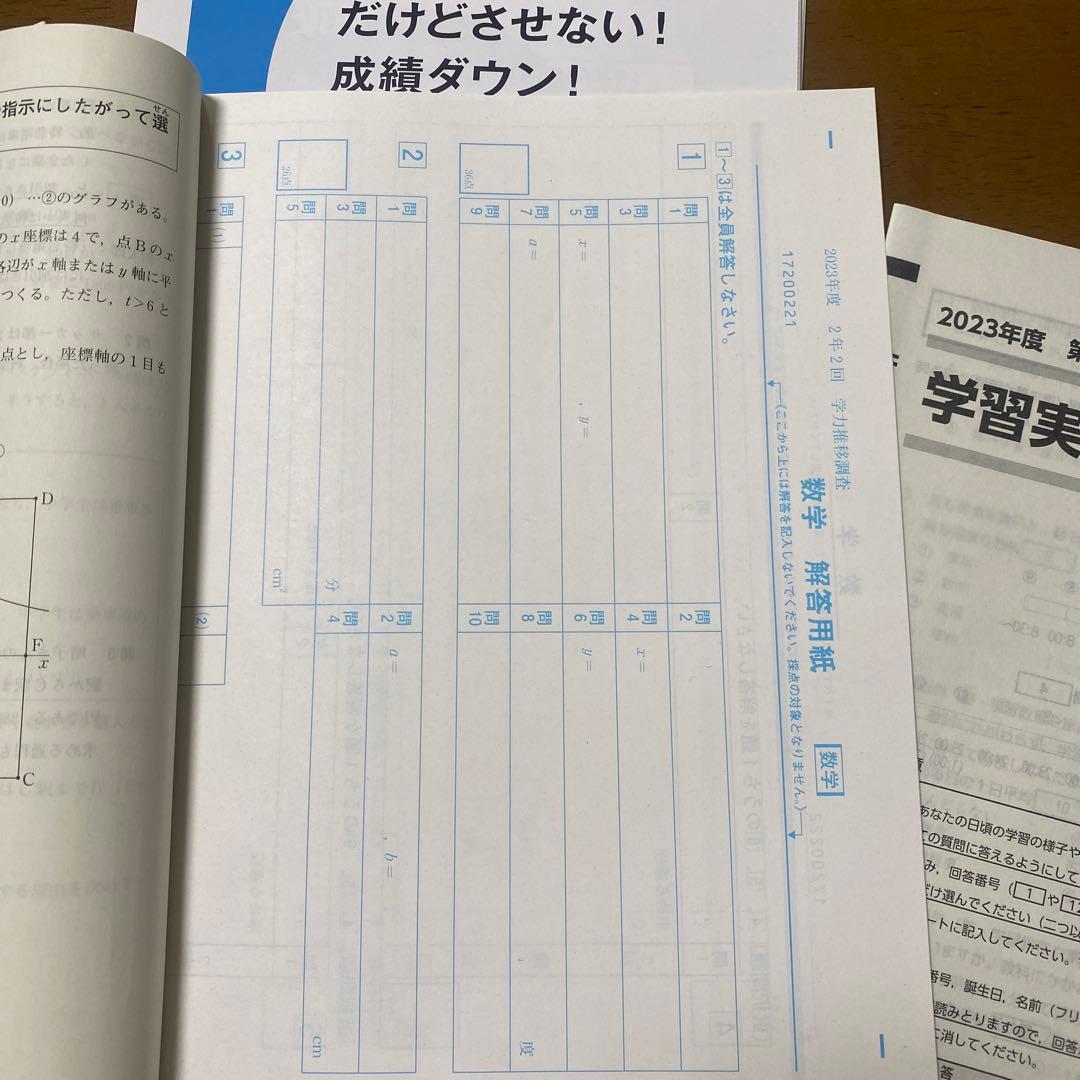 だけどさせない!
成績ダウン!
指示にしたがって選
せん
0) …②のグラフがある。
のx座標は4で，点Bのx
各辺がx軸またはy軸に平
つくる。ただし，t>6と
点とし，座標軸の1目も
D
F
x
C
2023年度 2年2回 学力推移調査
数学 解答用紙
数学
17200221
(ここから上には解答を記入しないでください。採点の対象となりません。)
1～3は全員解答しなさい。
1
36点
問1
問2
問3
問4 x=
問5 x= , y=
問6 y=
問7 a=
問8 度
問9
問10
2
26点
問1
問2 a= , b=
問3 分
問4 cm
問5 cm²
3
問1
(1)
(2)
2023年度 第
学習実
あなたの日頃の学習の様子や
の質問に答えるようにして
み，回答番号（1や1
だけ選んでください（二つ以
ートに記入してください。
番号，誕生日，名前（フリ
読みとりますので，回答
に消してください。
答